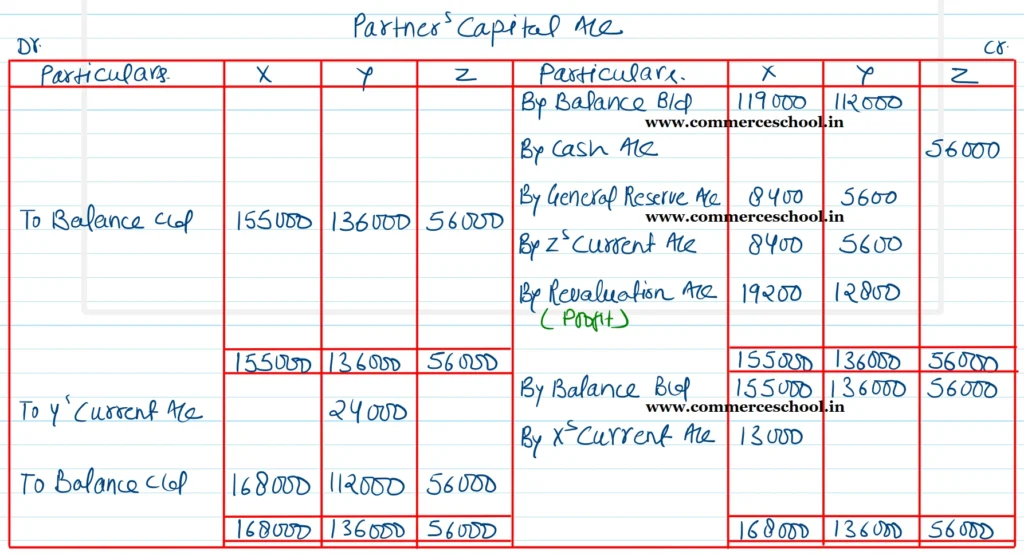 Partner's Capital A/c
Dr. Cr.
Particulars. X Y Z Particulars. X Y Z
By Balance B/d 119000 112000
www.commerceschool.in
By Cash A/c 56000
By General Reserve A/c 8400 5600
www.commerceschool.in
To Balance C/d 155000 136000 56000
By Z's Current A/c 8400 5600
By Revaluation A/c 19200 12800
(Profit)
155000 136000 56000 155000 136000 56000
By Balance B/d 155000 136000 56000
www.commerceschool.in
To Y's Current A/c 24000
By X's Current A/c 13000
To Balance C/d 168000 112000 56000
168000 136000 56000 168000 136000 56000